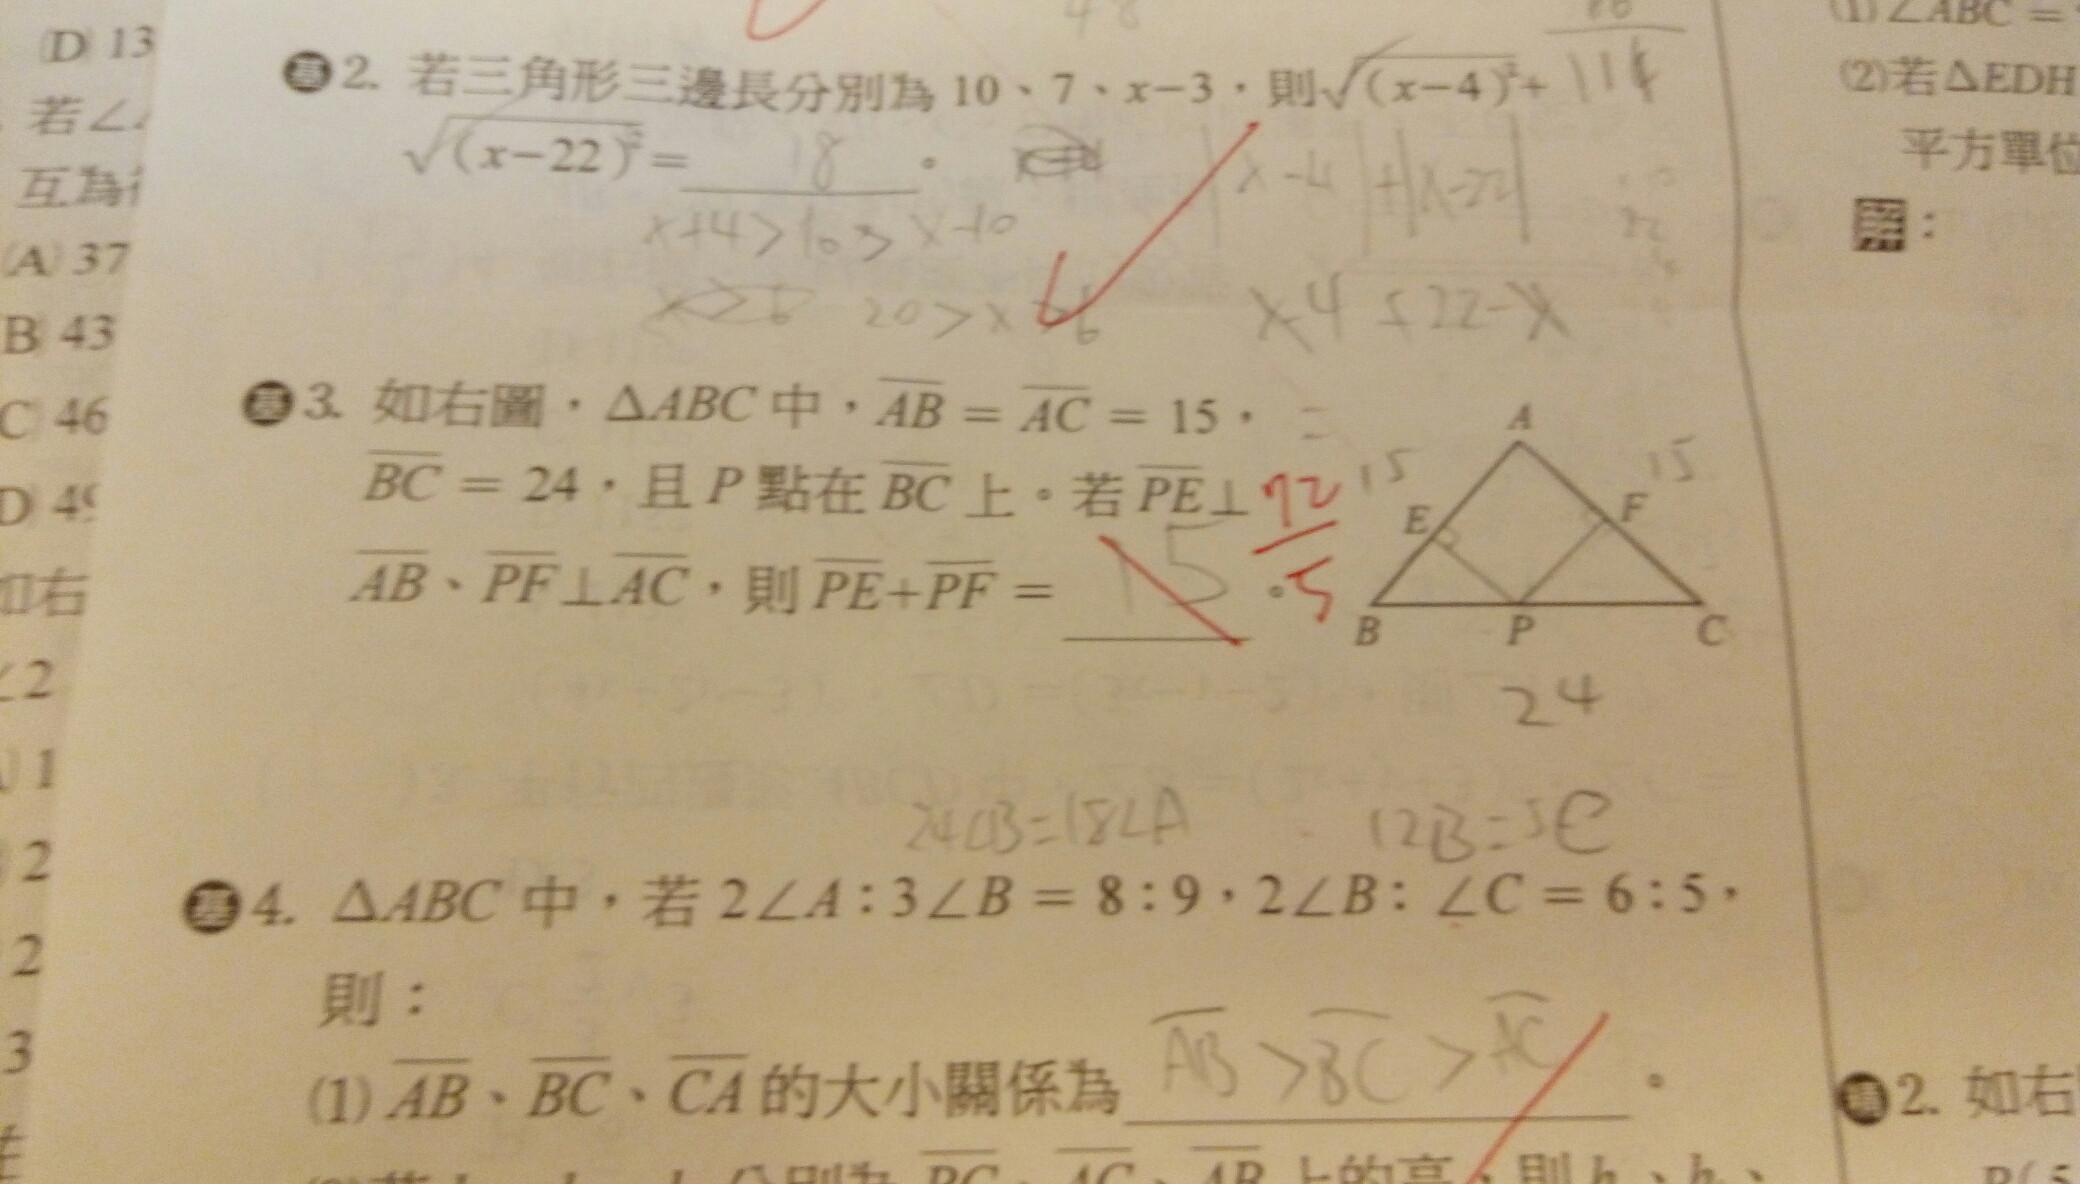 (D) 13
若∠
互為
(A) 37
(B) 43
(C) 46
(D) 49
如右
∠2
1
2
2
3
48
基2. 若三角形三邊長分別為 10、7、x−3，則√(x−4)²+
114
√(x−22)² = 18 。
|x−4|+|x−22|
x+4>10>x−10
20>x>6
x−4+22−x
基3. 如右圖，△ABC 中，AB = AC = 15，
BC = 24，且 P 點在 BC 上。若 PE⊥
AB、PF⊥AC，則 PE+PF = 15 。
72
5
A
15
15
E
F
B
P
C
24
24∠B=18∠A
12B=5C
基4. △ABC 中，若 2∠A : 3∠B = 8 : 9，2∠B : ∠C = 6 : 5，
則：
(1) AB、BC、CA 的大小關係為 AB>BC>AC 。
分別為 BC、AC、AB 上的高，則 h、h、
(1)∠ABC =
(2)若△EDH
平方單位
解：
2. 如右
P(5